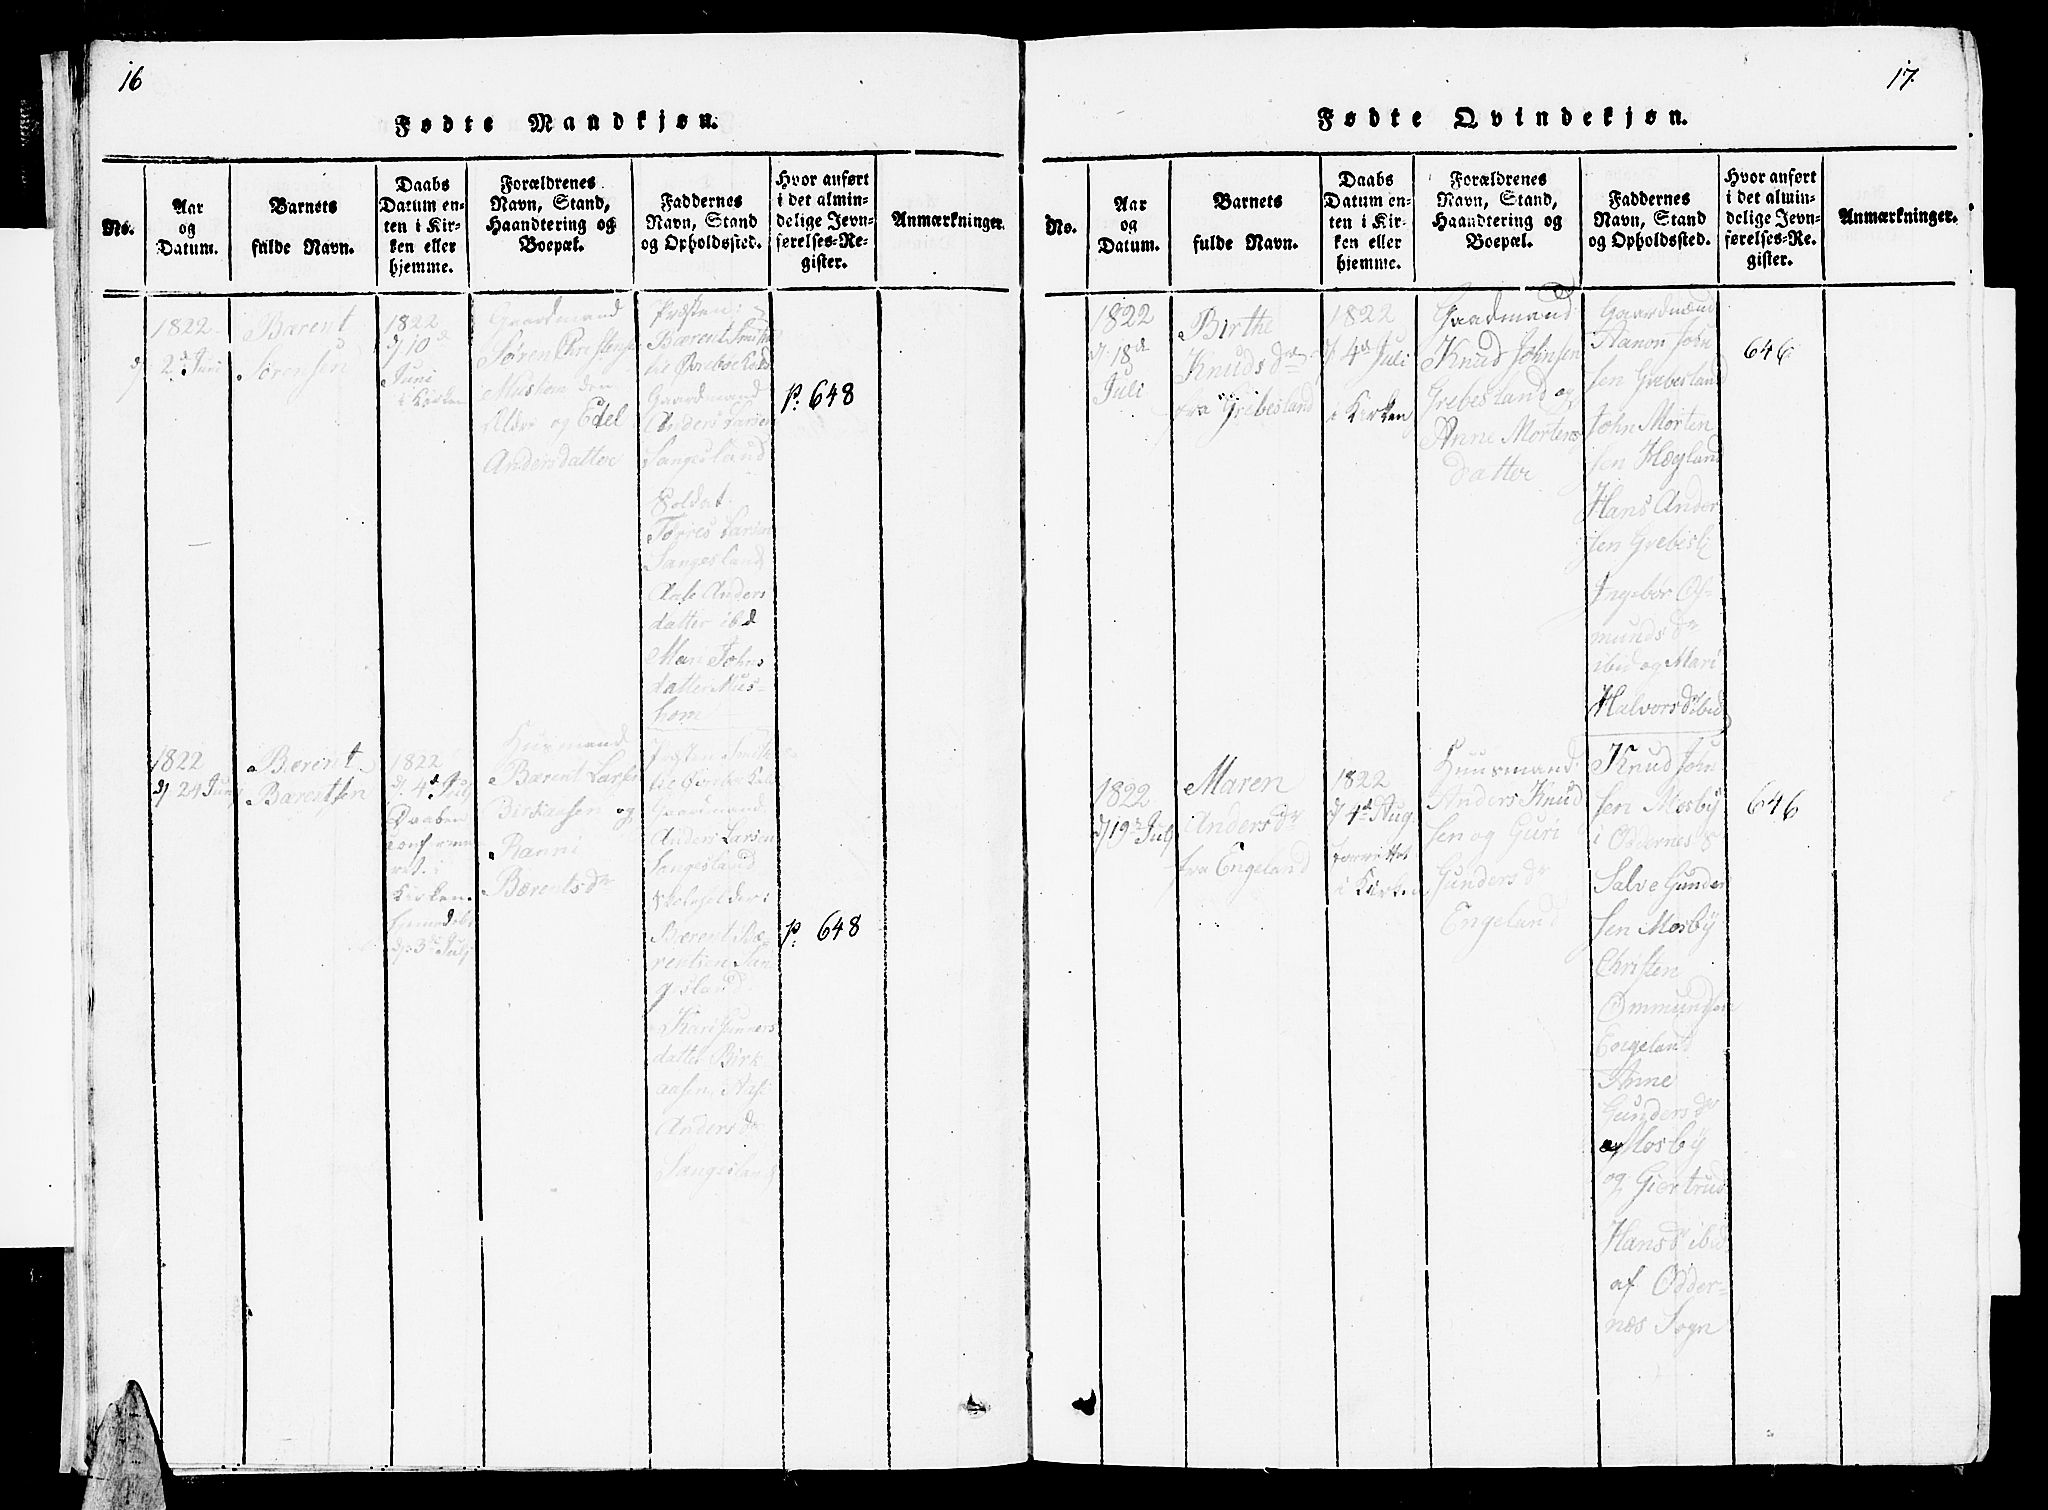 16
Fødte Mandkjøn.
No.
Aar
og
Datum.
Barnets
fulde Navn.
Daabs
Datum en-
ten i Kir-
ken eller
hjemme.
Forældrenes
Navn, Stand,
Haandtering og
Boepæl.
Faddernes
Navn, Stand
og Opholdssted.
Hvor anført
i det almin-
delige Jevn-
førelses-Re-
gister.
Anmærkninger.
1822
2d Juni
Bærent
Sørensen
1822
d 10d
Juni
i Kirken
Gaardmand
Søren Christensen
Mushom den
Ældre og Edel
Andersdatter
Præsten:
Bærent Smith
Gaardmand
Anders Larsen
Langesland
Soldat
Torres Larsen
Langesland
Aase Anders
datter ibd
Mari Johns
datter Mus-
hom
p. 648
1822
d 24 Junj
Bærent
Bærentsen
1822
d. 4d Julj
Daaben
conf
i
Kirken
hjemdøbt
d. 3d Julj
Huusmand
Bærent Larsen
Birkaasen og
Ranni
Bærentsdr
Præsten Smith
Gaardmand
Anders Larsen
Langesland
Skoleholder:
Bærent Bæ-
rentsen Lan
gesland
Kari Gunners
datter Birk
aasen, Aase
Andersdr
Langesland
p. 648
17.
Fødte Qvindekjøn.
No.
Aar
og
Datum.
Barnets
fulde Navn.
Daabs
Datum en-
ten i Kir-
ken eller
hjemme.
Forældrenes
Navn, Stand,
Haandtering og
Boepæl.
Faddernes
Navn, Stand
og Opholdssted.
Hvor anført
i det almin-
delige Jevn-
førelses-Re-
gister.
Anmærkninger.
1822
d. 18d
Juli
Birthe
Knudsdr
fra Grebesland
1822
d 4d Juli
i Kirken
Gaadmand
Knud Johnsen
Grebesland og
Anne Mortens
datter
Gaardmænd
Hanon John
sen Grebesland
John Morten
sen Høyland
Hans Ander
sen Grebesl
Ingebor Os-
mundsdr
ibid og Mari
Halvorsdr ibid
646
1822
d 19d Julj
Maren
Andersdr
fra Engeland
1822
d 4d Aug
forrettet
i Kirken
Huusmand
Anders Knud
sen og Guri
Gundersdr
Engeland
Knud John
sen Mosby
i Oddernes S
Salve Gunder
sen Mosby
Christen
Ommundsen
Engeland
Anne
Gundersdr
Mosby
og Giertrud
Hansdr ibid
af Odder-
næs Sogn
646